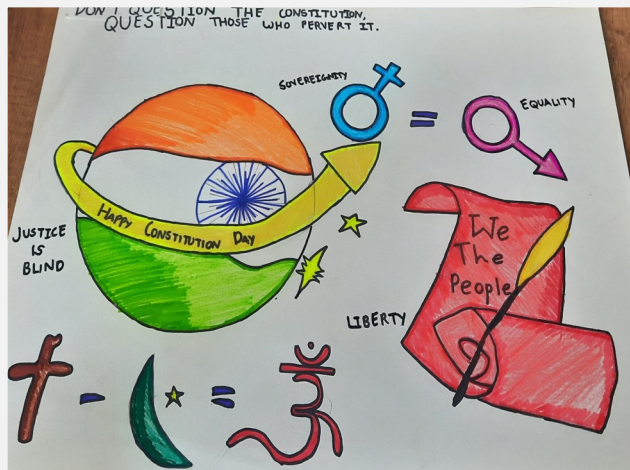 DON'T QUESTION THE CONSTITUTION,
QUESTION THOSE WHO PERVERT IT.
SOVEREIGNITY
EQUALITY
HAPPY CONSTITUTION DAY
JUSTICE
IS
BLIND
We
The
People
LIBERTY
ॐ